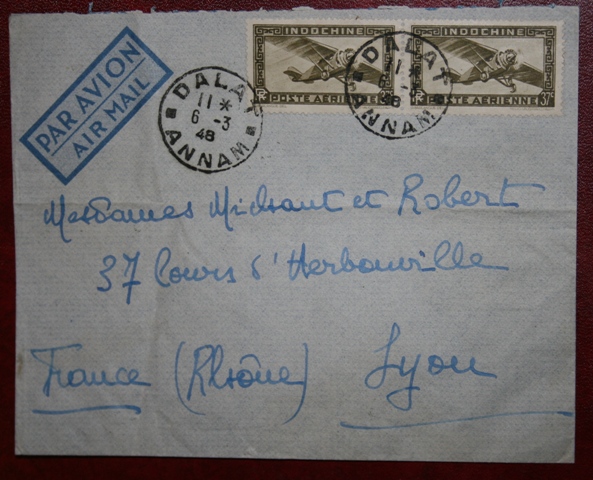 PAR AVION
AIR MAIL
INDOCHINE
POSTE AERIENNE
INDOCHINE
POSTE AERIENNE 37c
DALAT
11 *
6 -3
48
ANNAM
DALAT
11 *
48
ANNAM
Mesdames Midrant et Robert
37 Cours d'Herbouville
France (Rhône) Lyon